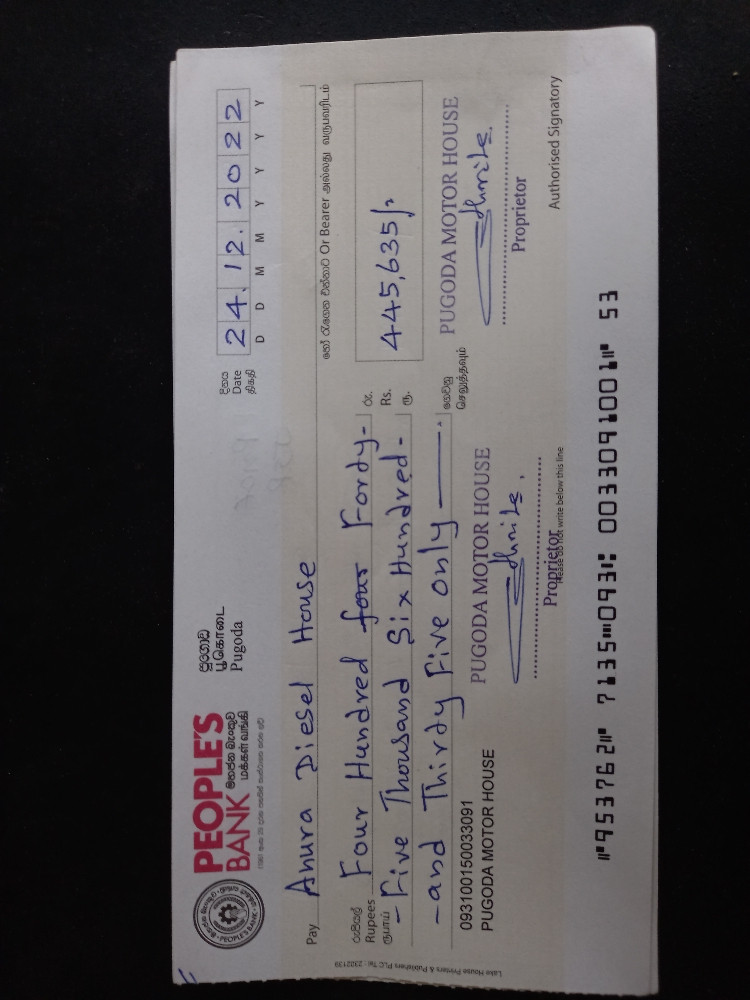 PEOPLE'S
BANK
මහජන බැංකුව
மக்கள் வங்கி
PEOPLE'S BANK
පූගොඩ
பூகொடை
Pugoda
දිනය
Date
திகதி
24.12.2022
D D M M Y Y Y Y
Pay Anura Diesel House
හෝ රැගෙන එන්නාට Or Bearer அல்லது வருபவரிடம்
රුපියල්
Rupees
ரூபாய்
Four Hundred four Forty-
-Five Thousand Six Hundred-
-and Thirdy Five only
රු.
Rs.
ரூ.
445,635/=
ගෙවනු
செலுத்தவும்
093100150033091
PUGODA MOTOR HOUSE
PUGODA MOTOR HOUSE
Proprietor
PUGODA MOTOR HOUSE
Proprietor
Please do not write below this line
Authorised Signatory
Lake House Printers & Publishers PLC Tel : 2302139
⑈953762⑈ 7135⑉093⑆ 003309100 1⑈ 53